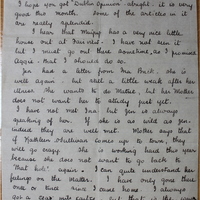 I hope you got "Dublin Opinion" alright. it is very
good this month. Some of the articles in it
are really splendid.
I hear that Maisy has a very nice little
house out at Fairview. I have not seen it
but I must go out there sometime, as I promised
Aggie that I should do so.
Jen had a letter from Mrs. she is
well again, but still a little weak after her
illness. She wants to do Matric, but her Mother
does not want her to study just yet.
I have not met Ina, but Jen is always
speaking of her. If she is as wild as Jen.
indeed they are well met. Mother says that
if Kathleen Sullivan comes up to town, they
will go crazy. She is working hard this year
because she does not want to go back to
"that hole" again. I can quite understand her
feelings on the matter. I have only gone there
once or twice since I came home. I always